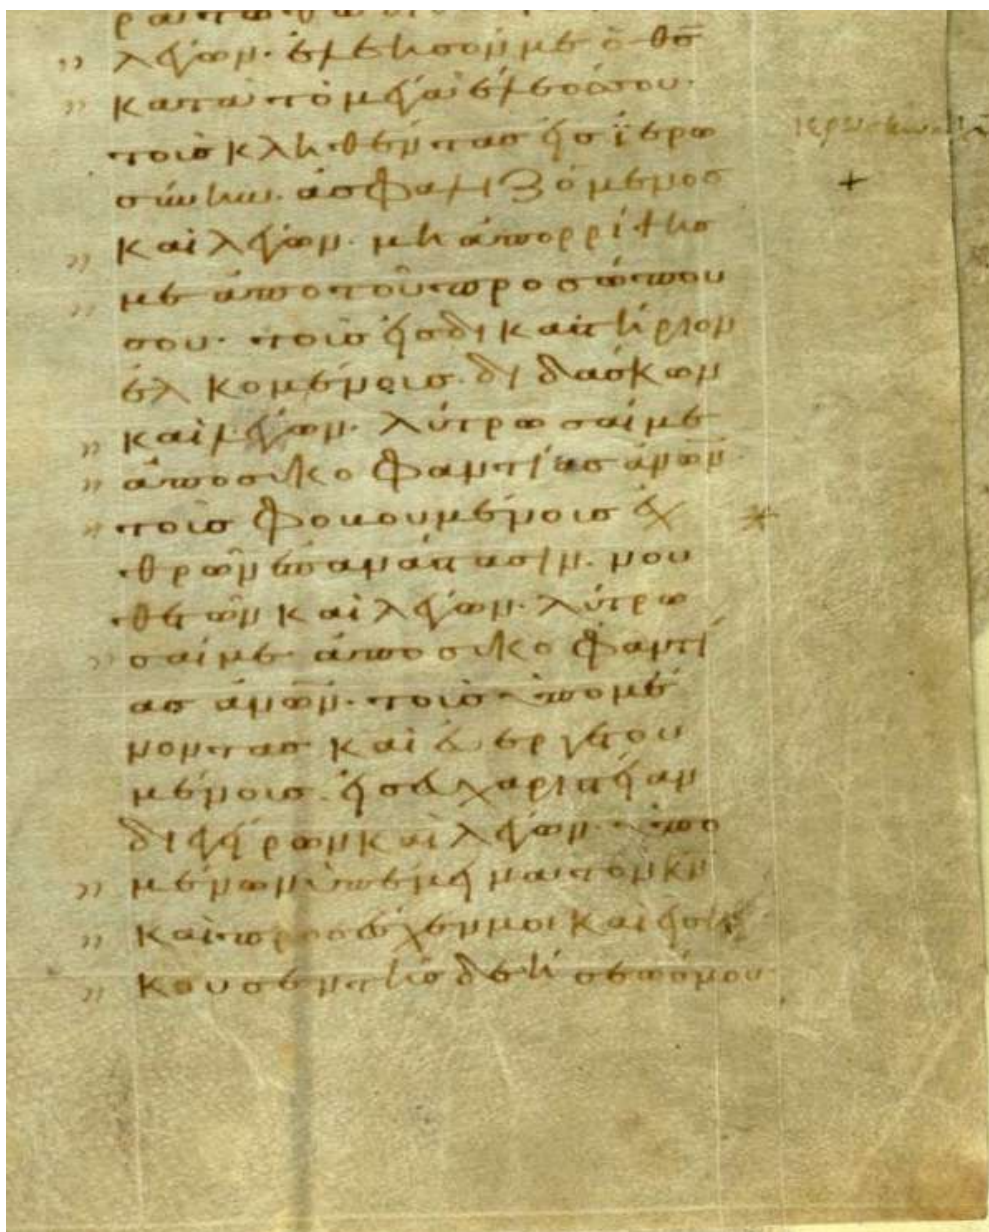 λέγων· ἐλέησόν με ὁ θς
κατὰ τὸ μέγα ἔλεόσ σου·
τοὶσ κληθέντασ εἰσ ἱερω
σύνην· ἀσφαλιζόμενοσ
καὶ λέγων· μὴ ἀπορρίψησ
με ἀπὸ τοῦ προσώπου
σου· τοὶσ εἰσ δικαστήριον
ἑλκομένοισ· διδάσκων
καὶ λέγων· λύτρωσαί με
ἀπὸ συκοφαντίασ ἀνων
τοῖσ φονουμένοισ ἐχ
θρῶν ἐπαναστασιν· νου
θετῶν καὶ λέγων· λύτρω
σαί με ἀπὸ συκοφαντί
ασ ἀνων· τοὶσ ὑπομέ
νοντασ καὶ εὐεργετου
μένοισ· εἰσ εὐχαριστείαν
διεγείρων καὶ λέγων· ὑπο
μένων ὑπέμεινα τὸν κν
καὶ προσέσχεν μοι καὶ εἰσή
κουσεν τῆσ δεήσεώσ μου